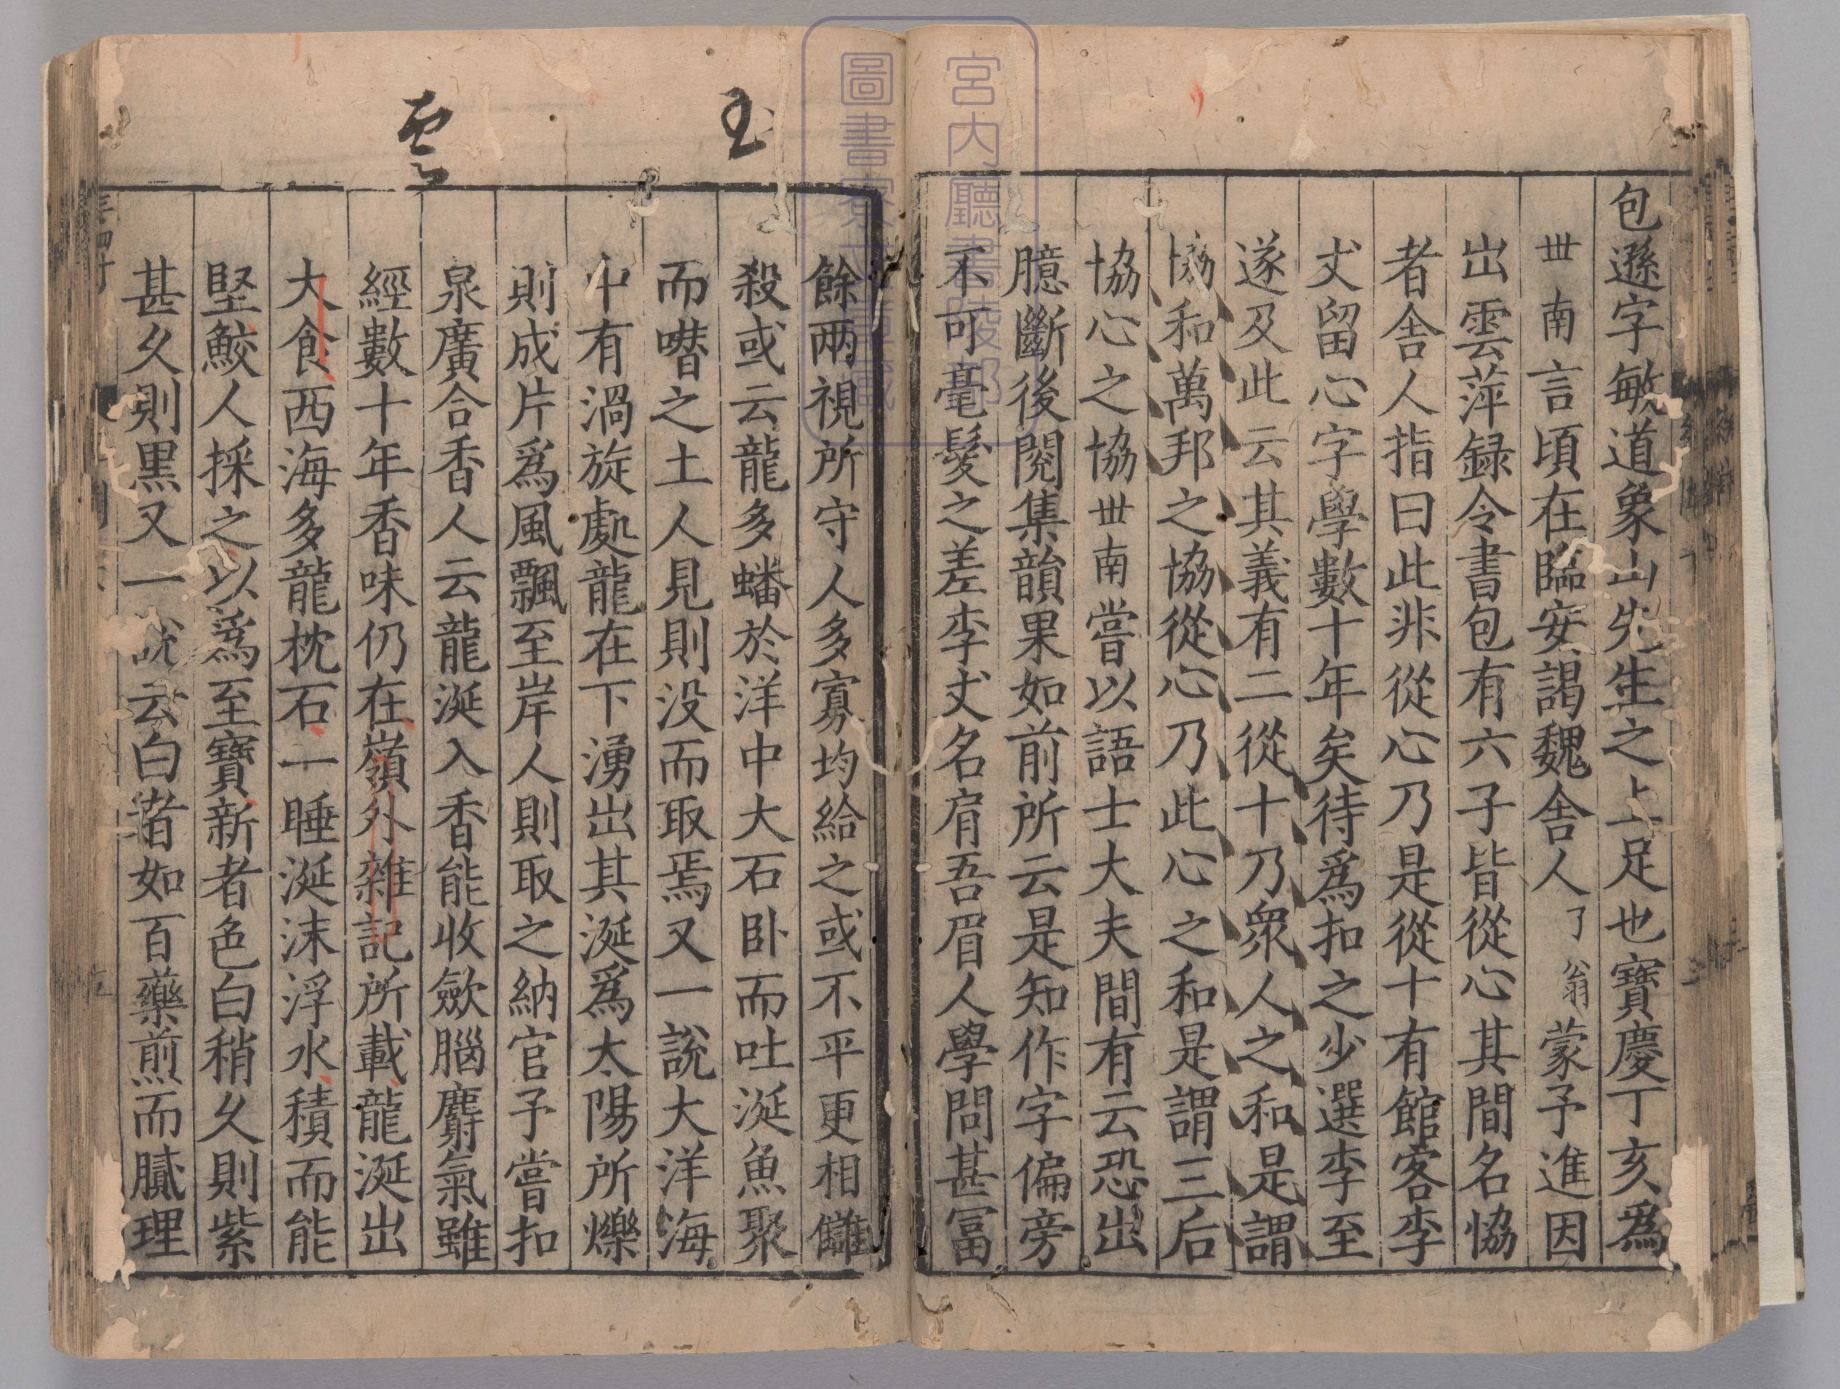 包遜字敏道象山先生之上足也寶慶丁亥爲
丗南言頃在臨安謁魏舍人了翁蒙予進因
出雲萍録令書包有六子皆從心其間名恊
者舍人指曰此非從心乃是從十有館客李
丈留心字學數十年矣待爲扣之少選李至
遂及此云其義有二從十乃衆人之和是謂
協和萬邦之協從心乃此心之和是謂三后
協心之協丗南嘗以語士大夫間有云恐出
臆斷後閱集韻果如前所云是知作字偏旁
不可毫髮之差李丈名肩吾眉人學問甚冨
餘两視所守人多寡均給之或不平更相讎
殺或云龍多蟠於洋中大石卧而吐涎魚聚
而噆之土人見則没而取焉又一說大洋海
中有渦旋處龍在下湧出其涎爲太陽所爍
則成片爲風飄至岸人則取之納官予嘗扣
泉廣合香人云龍涎入香能收斂腦麝氣雖
經數十年香味仍在嶺外雜記所載龍涎出
大食西海多龍枕石一睡涎沫浮水積而能
堅鮫人採之以爲至寶新者色白稍乆則紫
甚乆則黒又一說云白者如百藥煎而膩理
玉
雲
宮内廳書陵部
圖書寮文庫藏